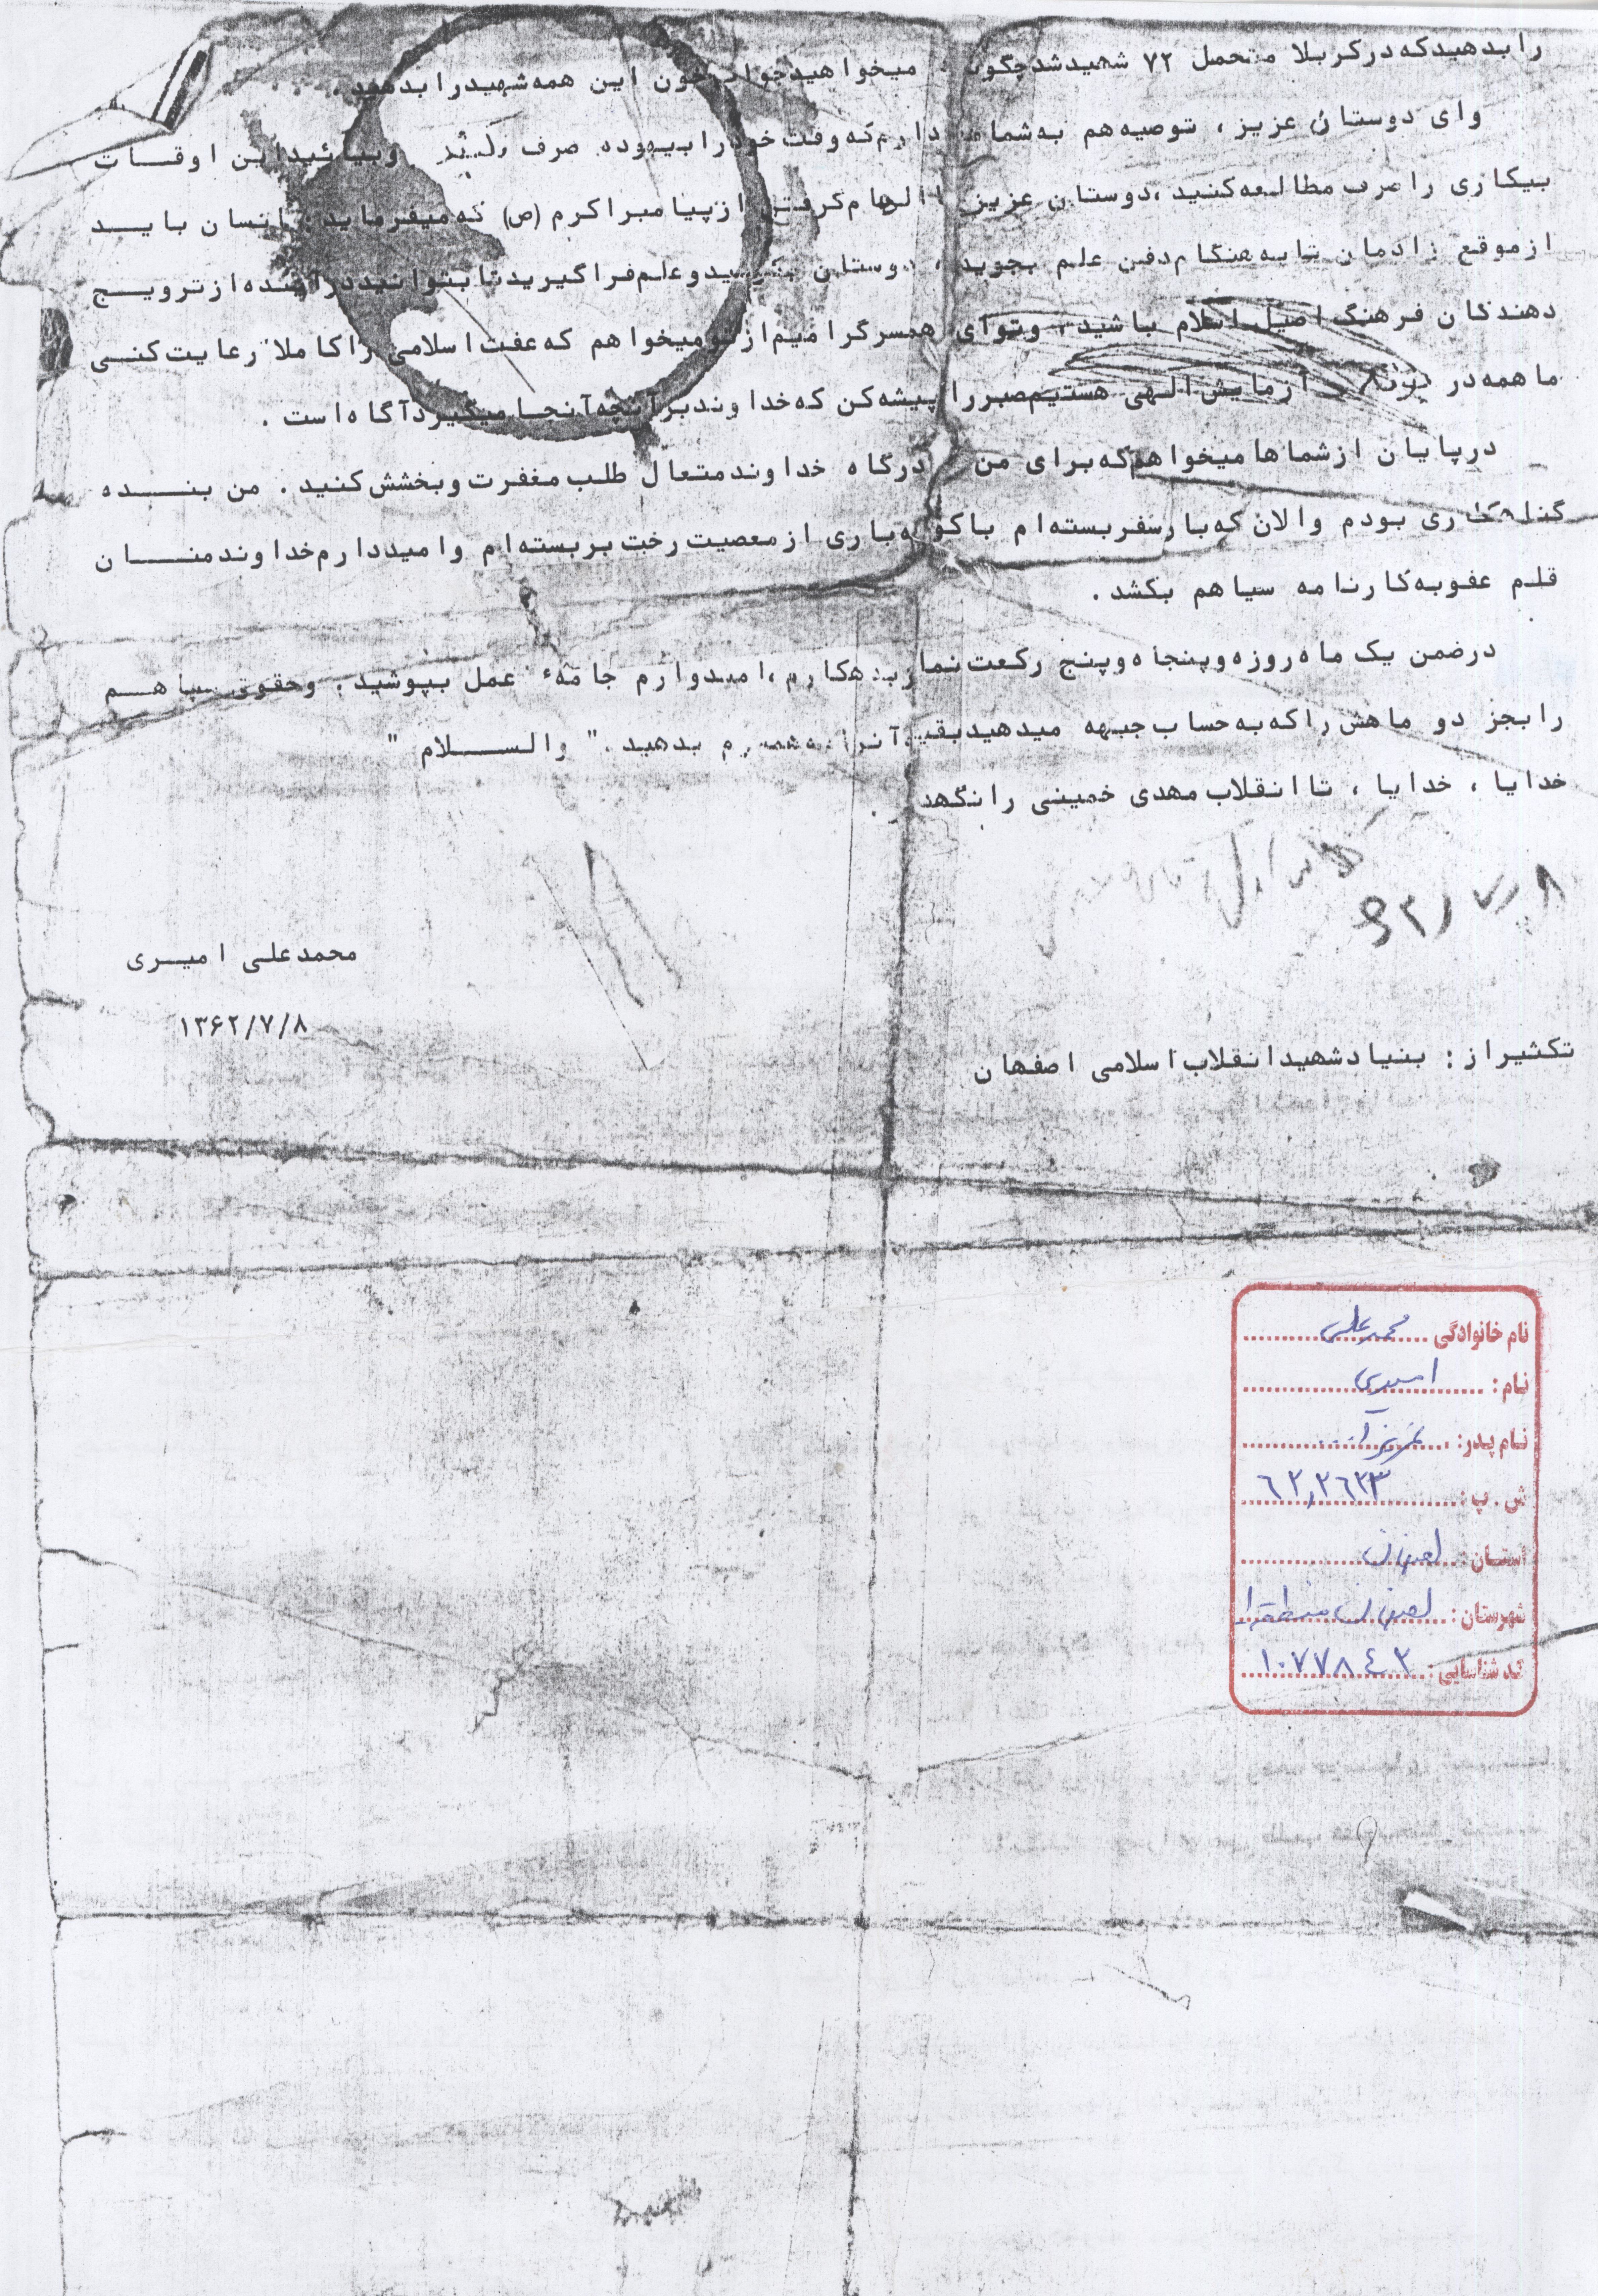 را بدهید که در کربلا متحمل ۷۲ شهید شد چگونه میخواهید جواب خون این همه شهید را بدهید .
وای دوستان عزیز ، توصیه هم به شما دارم که وقت خود را بیهوده صرف وبیائید این اوقات
بیکاری را صرف مطالعه کنید ، دوستان عزیز با الهام گرفتن از پیامبر اکرم (ص) که میفرماید ، انسان باید
از موقع زادمان تا به هنگام دفن علم بجوید ، دوستان وعلم فرا گیرید تا بتوانید در آینده از ترویج
دهندگان فرهنگ اصیل اسلام باشید ، وتوای همسر گرامیم از تو میخواهم که عفت اسلامی را کاملا" رعایت کنی
ما همه در آزمایش الهی هستیم صبر را پیشه کن که خداوند بر آنچه آنجا میگیرد آگاه است .
در پایان از شماها میخواهم که برای من درگاه خداوند متعال طلب مغفرت وبخشش کنید . من بنده
گناهکاری بودم والان که بار سفر بسته ام با کوله باری از معصیت رخت بر بسته ام وامیددارم خداوند منان
قلم عفو به کارنامه سیاهم بکشد .
در ضمن یک ماه روزه وپنجاه وپنج رکعت نماز بدهکارم ، امیدوارم جامهٔ عمل بپوشید . وحقوق سپاهم
را بجز دو ماهش را که به حساب جبهه میدهید بقیه آنرا به همسرم بدهید . " والسلام "
خدایا ، خدایا ، تا انقلاب مهدی خمینی را نگهدار .
محمدعلی امیری
۱۳۶۲/۷/۸
تکثیر از : بنیاد شهید انقلاب اسلامی اصفهان
نام خانوادگی محمدعلی
نام : امیری
نام پدر : عزیزا...
ش . پ : ٦٢,٢٦٢٣
استان : اصفهان
شهرستان : اصفهان منطقه ۱
کد شناسایی : ١٠٧٧٨٤٢